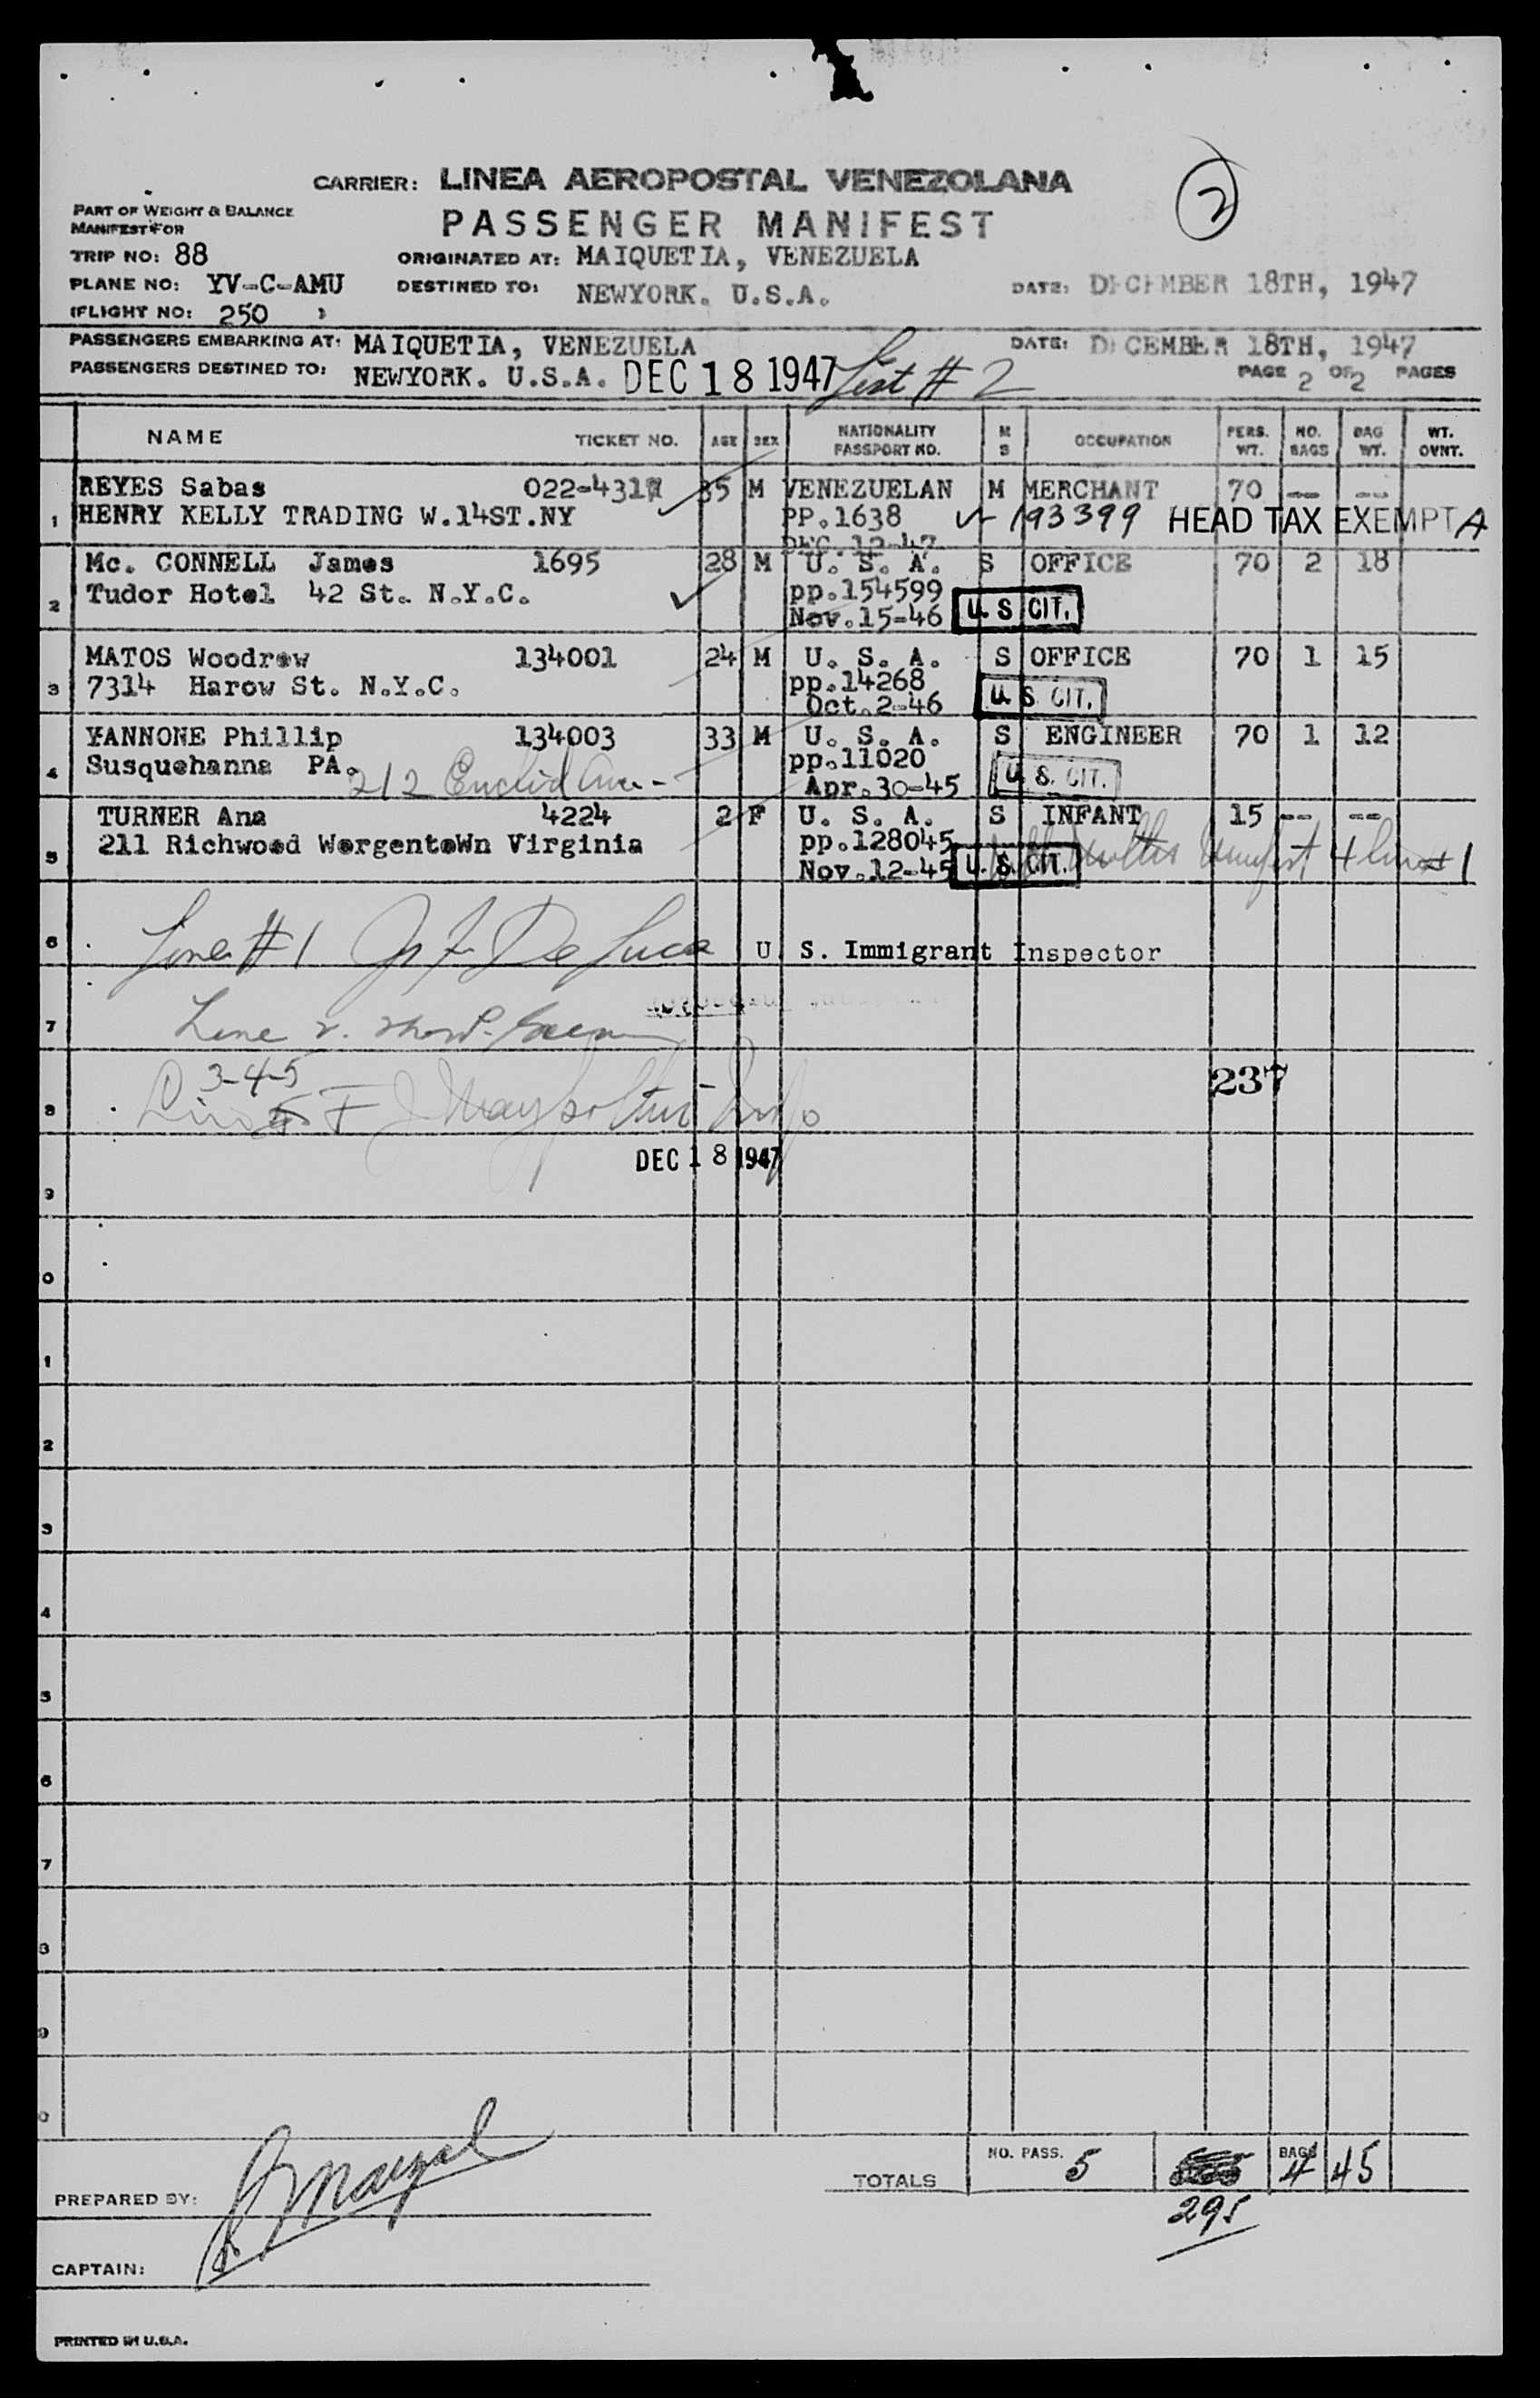 2
CARRIER: LINEA AEROPOSTAL VENEZOLANA
PART OF WEIGHT & BALANCE
MANIFEST FOR
PASSENGER MANIFEST
TRIP NO: 88
ORIGINATED AT: MAIQUETIA, VENEZUELA
PLANE NO: YV-C-AMU
DESTINED TO: NEWYORK. U.S.A.
DATE: DECEMBER 18TH, 1947
(FLIGHT NO: 250 )
PASSENGERS EMBARKING AT: MAIQUETIA, VENEZUELA
DATE: DECEMBER 18TH, 1947
PASSENGERS DESTINED TO: NEWYORK. U.S.A. DEC 18 1947 List # 2
PAGE 2 OF 2 PAGES
NAME TICKET NO. AGE SEX NATIONALITY PASSPORT NO. M S OCCUPATION PERS. WT. NO. BAGS BAG WT. WT. OVNT.
REYES Sabas 022-4317 35 M VENEZUELAN M MERCHANT 70 -- --
1 HENRY KELLY TRADING W.14ST.NY PP.1638 193399 HEAD TAX EXEMPT A
DEC.12-47
Mc. CONNELL James 1695 28 M U. S. A. S OFFICE 70 2 18
2 Tudor Hotel 42 St. N.Y.C. pp.154599
Nov.15-46 U. S. CIT.
MATOS Woodrow 134001 24 M U. S. A. S OFFICE 70 1 15
3 7314 Harow St. N.Y.C. pp.14268
Oct.2-46 U. S. CIT.
YANNONE Phillip 134003 33 M U. S. A. S ENGINEER 70 1 12
4 Susquehanna PA. 212 Euclid Ave- pp.11020
Apr.30-45 U. S. CIT.
TURNER Ana 4224 2 F U. S. A. S INFANT 15 -- --
5 211 Richwood WorgentoWn Virginia pp.128045
Nov.12-45 U. S. CIT.
6 Line #1 De Luca U S. Immigrant Inspector
7 Line 2.
3-4-5
8
237
DEC 18 1947
9
0
1
2
3
4
5
6
7
8
9
0
TOTALS NO. PASS. 5 BAGS 4 45
295
PREPARED BY:
CAPTAIN:
PRINTED IN U.S.A.